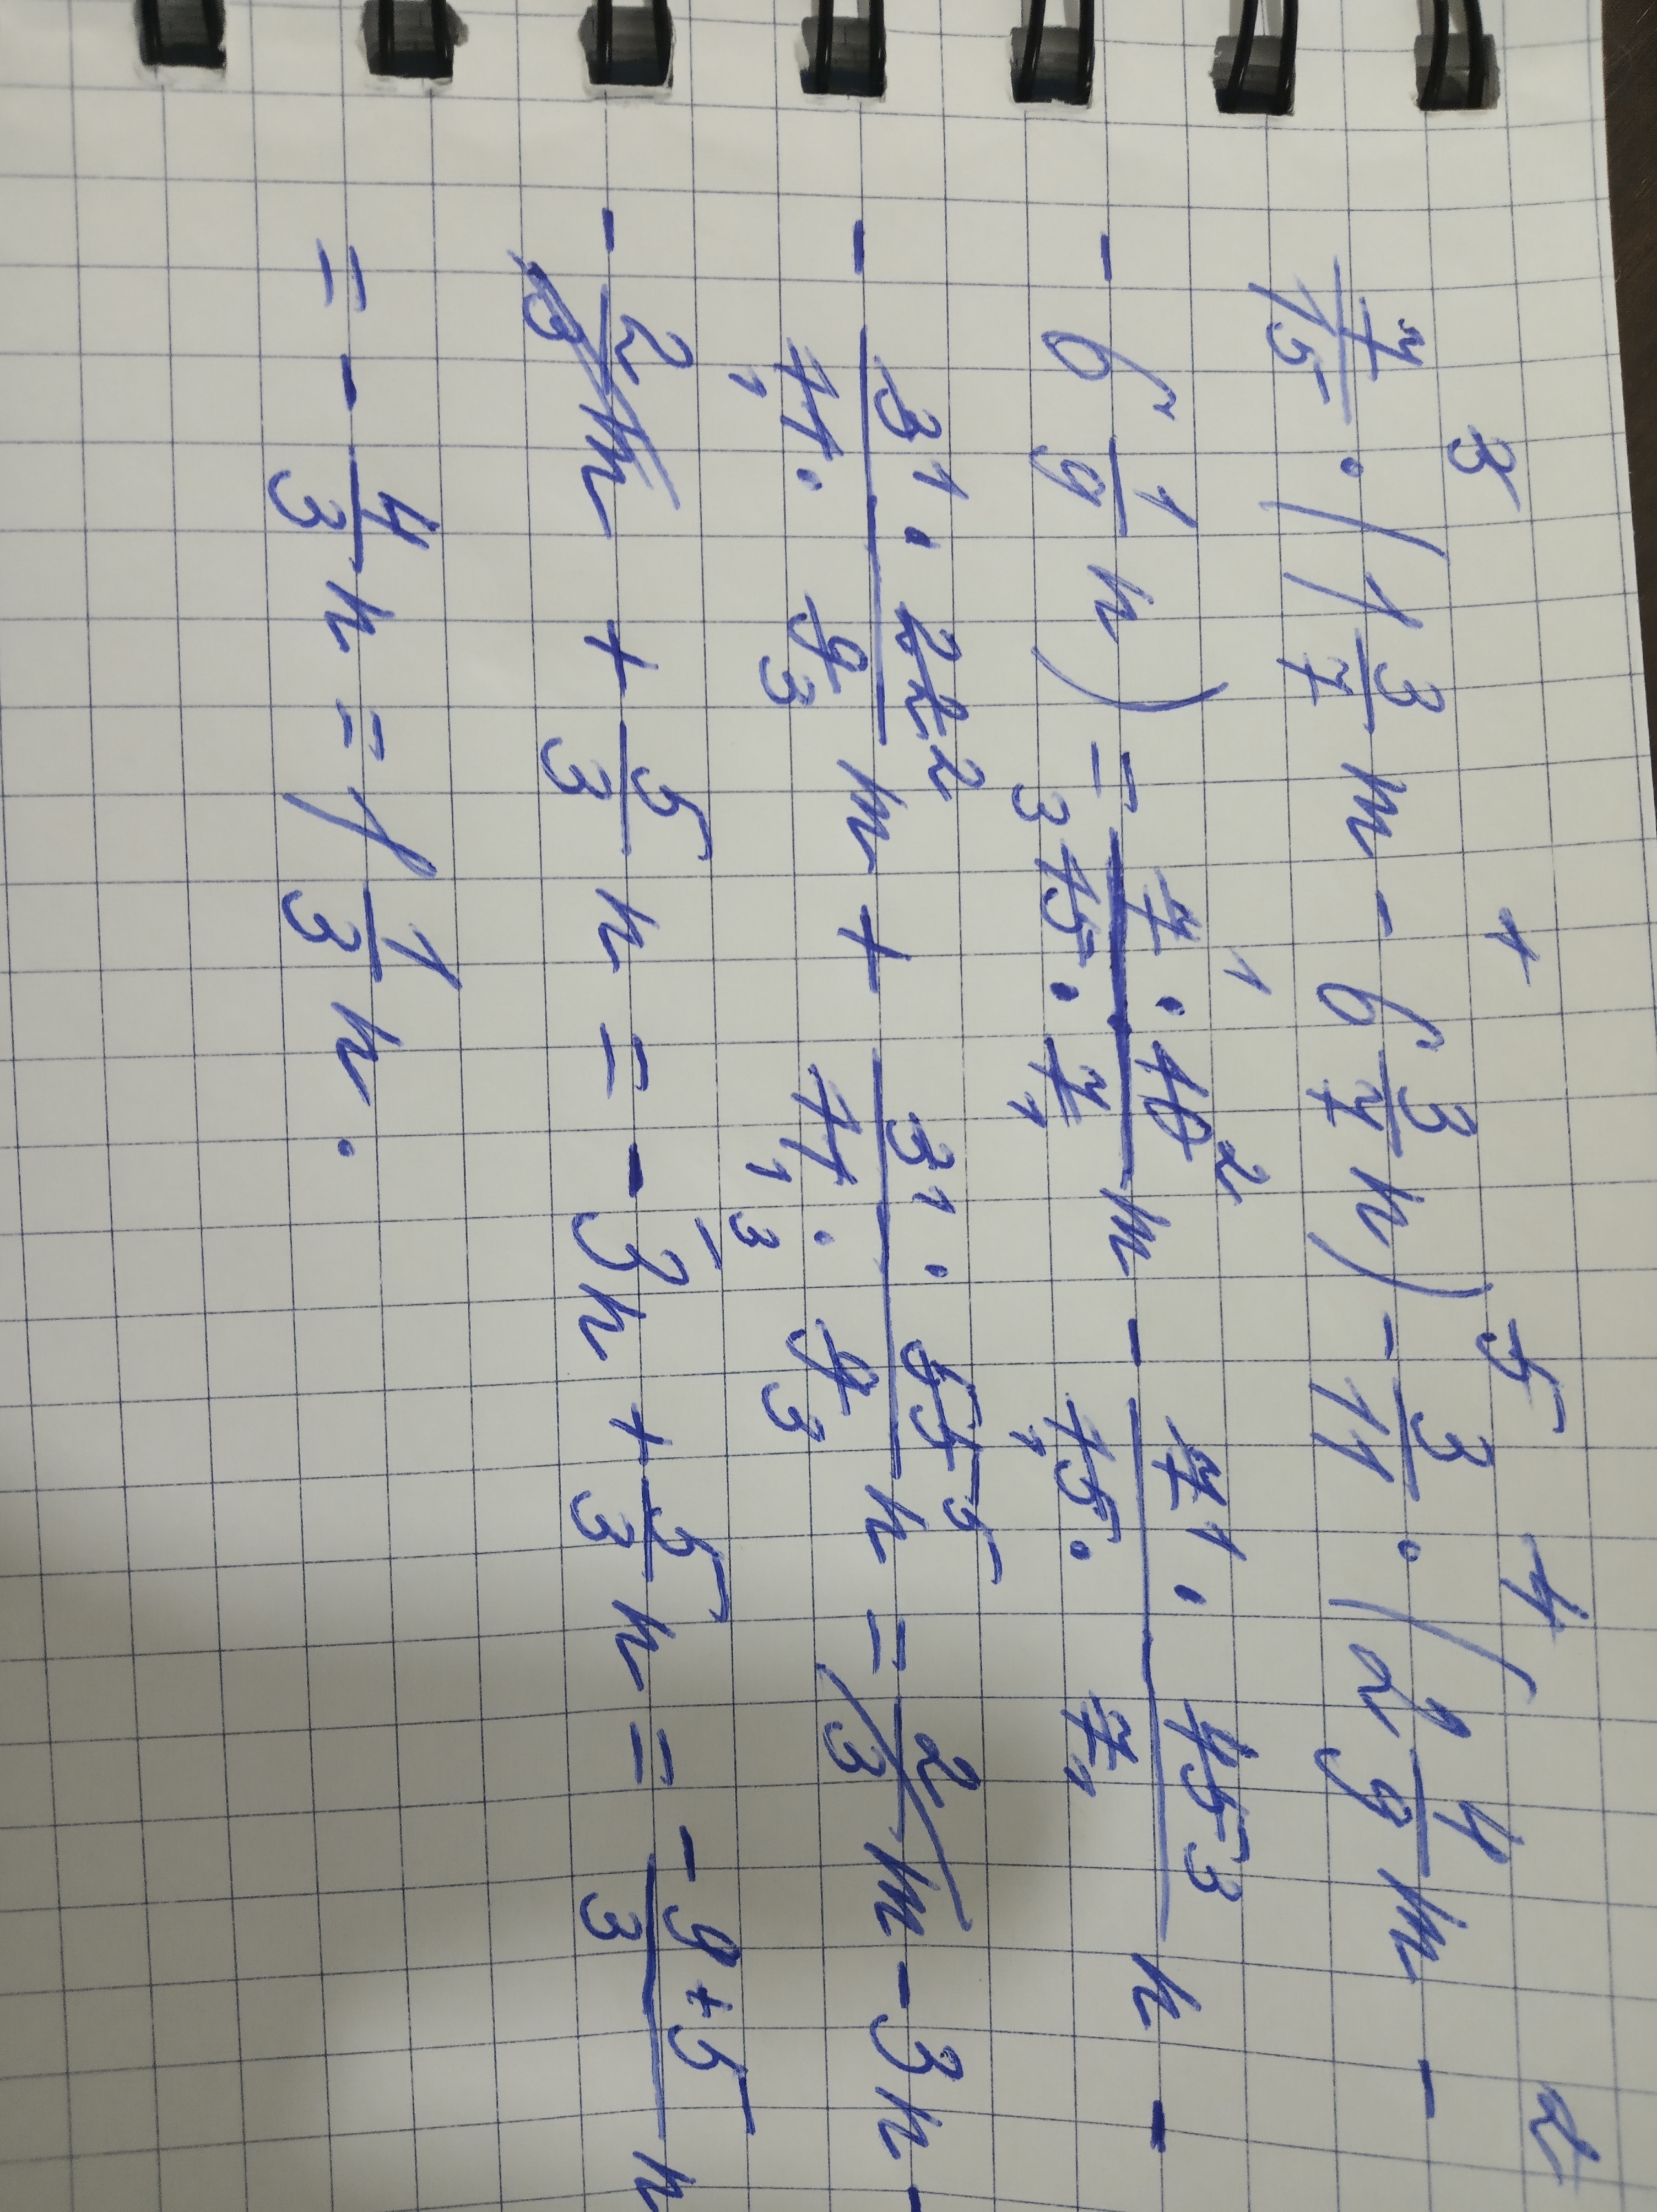 3 1 5 4 2
7/15 · (1 3/7 m - 6 3/7 n) - 3/11 · (2 4/9 m -
- 6 1/9 n) = 7 · 10/15 · 7 m - 7 · 45/15 · 7 n -
- 3 · 22/11 · 9 m + 3 · 55/11 · 9 n = 2/3 m - 3n -
- 2/3 m + 5/3 n = - 3n + 5/3 n = -9+5/3 n
= - 4/3 n = 1 1/3 n.